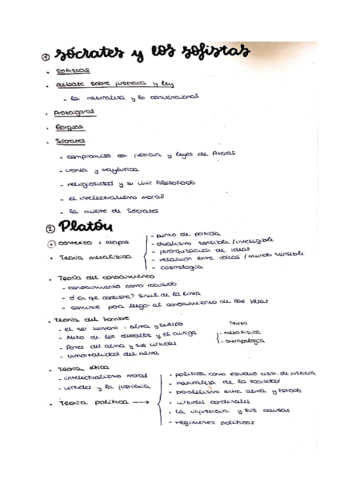 ① Sócrates y los sofistas
• Sofistas
• debate sobre justicia y ley
- la naturaleza y lo convencional
• Protágoras
• Gorgias
• Sócrates
- compromiso con justicia y leyes de Atenas
- ironía y mayéutica
- religiosidad y su vivir filosofando
- el intelectualismo moral
- la muerte de Sócrates
② Platón
• contexto y etapas
• Teoría metafísica
- punto de partida
- dualismo sensible/inteligible
- jerarquización de ideas
- relación entre ideas/mundo sensible
- cosmología
• Teoría del conocimiento
- conocimiento como recuerdo
- ¿En qué consiste? Símil de la línea
- caminos para llegar al conocimiento de las Ideas
• Teoría del hombre
- el ser humano: alma y cuerpo
- Mito de los caballos y el auriga
- Partes del alma y sus virtudes
- inmortalidad del alma
Texto
- metafísica
- antropología
• Teoría ética
- intelectualismo moral
- virtudes y la justicia
• Teoría política →
- política como estudio de justicia
- naturaleza de la sociedad
- paralelismo entre alma y Estado
- virtudes cardinales
- la injusticia y sus causas
- regímenes políticos